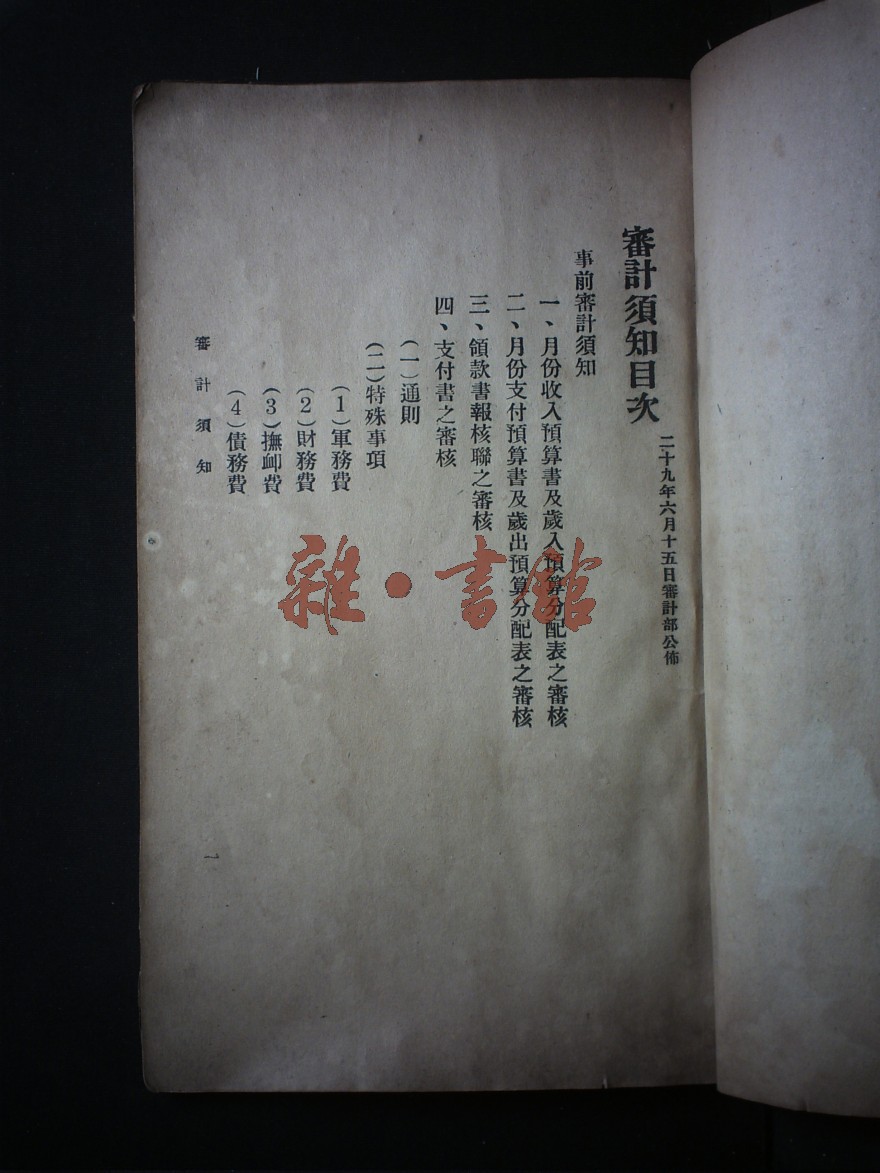 審計須知目次
二十九年六月十五日審計部公佈
事前審計須知
一、月份收入預算書及歲入預算分配表之審核
二、月份支付預算書及歲出預算分配表之審核
三、領款書報核聯之審核
四、支付書之審核
(一)通則
(二)特殊事項
(1)軍務費
(2)財務費
(3)撫卹費
(4)債務費
審計須知
一
雜·書館